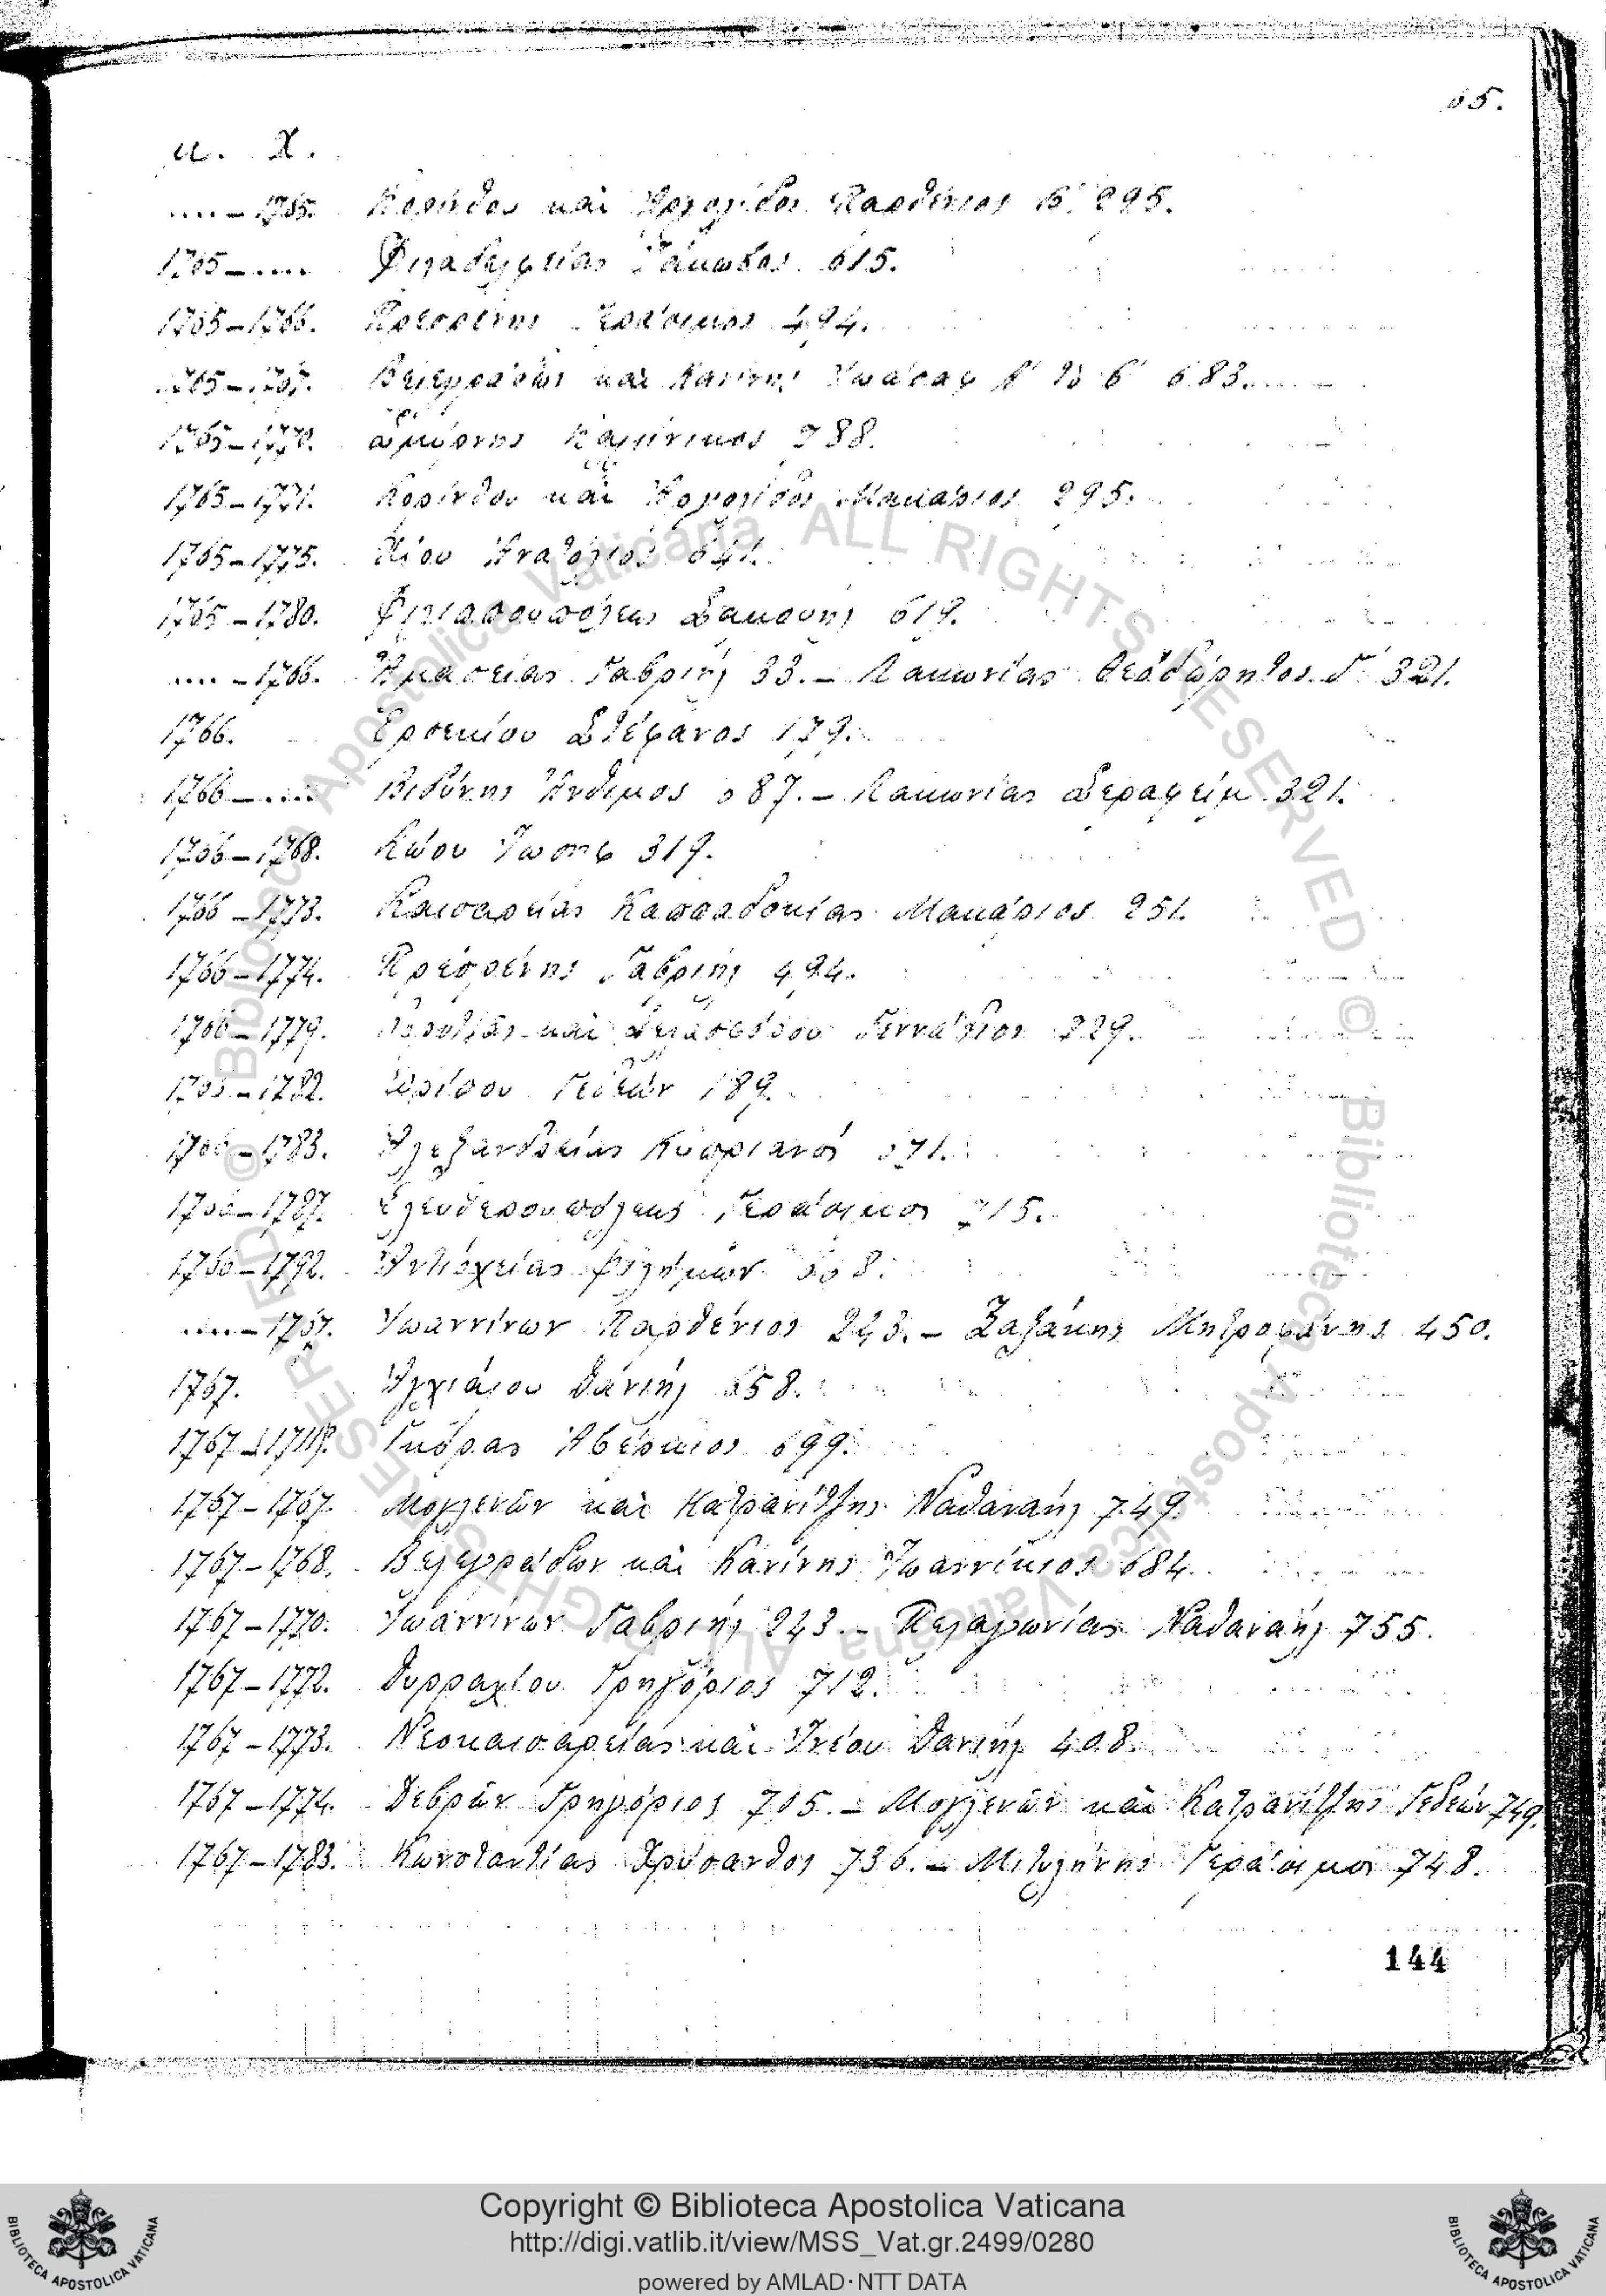 65.
μ. Χ.
.... – 1765. Κορίνθου καὶ Ἀργολίδος Παρθένιος Β΄ 295.
1765 – .... Φιλαδελφείας Ἰάκωβος 615.
1765 – 1766. Πρεσρένης Γεράσιμος 494.
1765 – 1767. Βελεγράδων καὶ Κανίνης Ἰωάσαφ Α΄ τὸ β΄ 683.
1765 – 1770. Σμύρνης Καλλίνικος 788.
1765 – 1771. Κορίνθου καὶ Ἀργολίδος Μακάριος 295.
1765 – 1775. Χίου Ἀνατόλιος 641.
1765 – 1780. Φιλιππουπόλεως Σαμουὴλ 619.
.... – 1766. Ἀμασείας Γαβριὴλ 33. – Λακωνίας Θεοδώρητος Γ΄ 321.
1766. Ἐρσεκίου Στέφανος 179.
1766 – .... Βιδύνης Ἄνθιμος 687. – Λακωνίας Σεραφείμ 321.
1766 – 1768. Κώου Ἰωσὴφ 319.
1766 – 1773. Καισαρείας Καππαδοκίας Μακάριος 251.
1766 – 1774. Πρεσρένης Γαβριὴλ 494.
1766 – 1779. καὶ Γεννάδιος 729.
1766 – 1782. Εὐρίπου Γεδεὼν 189.
1766 – 1783. Ἀλεξανδρείας Κυπριανὸς 671.
1766 – 1787. Ἐλευθερουπόλεως Γεράσιμος 715.
1766 – 1792. Ἀντιοχείας Φιλήμων 668.
.... – 1767. Ἰωαννίνων Παρθένιος 243. – Παξάκης Μητροφάνης 450.
1767. Ἀγχιάλου Δανιὴλ 658.
1767 – Γκόρας Ἀβέρκιος 699.
1767 – 1767. Μογλενῶν καὶ Κατρανίτζης Ναθαναὴλ 749.
1767 – 1768. Βελεγράδων καὶ Κανίνης Ἰωαννίκιος 684.
1767 – 1770. Ἰωαννίνων Γαβριὴλ 243. – Πελαγωνίας Ναθαναὴλ 755.
1767 – 1772. Δυρραχίου Γρηγόριος 712.
1767 – 1773. Νεοκαισαρείας καὶ Ἰνέου Δανιὴλ 408.
1767 – 1774. Δεβρῶν Γρηγόριος 705. – Μογλενῶν καὶ Κατρανίτζης Γεδεὼν 749.
1767 – 1783. Κωνσταντίας Χρύσανθος 736. – Μιτυλήνης Γεράσιμος 748.
144
Copyright © Biblioteca Apostolica Vaticana
http://digi.vatlib.it/view/MSS_Vat.gr.2499/0280
powered by AMLAD·NTT DATA